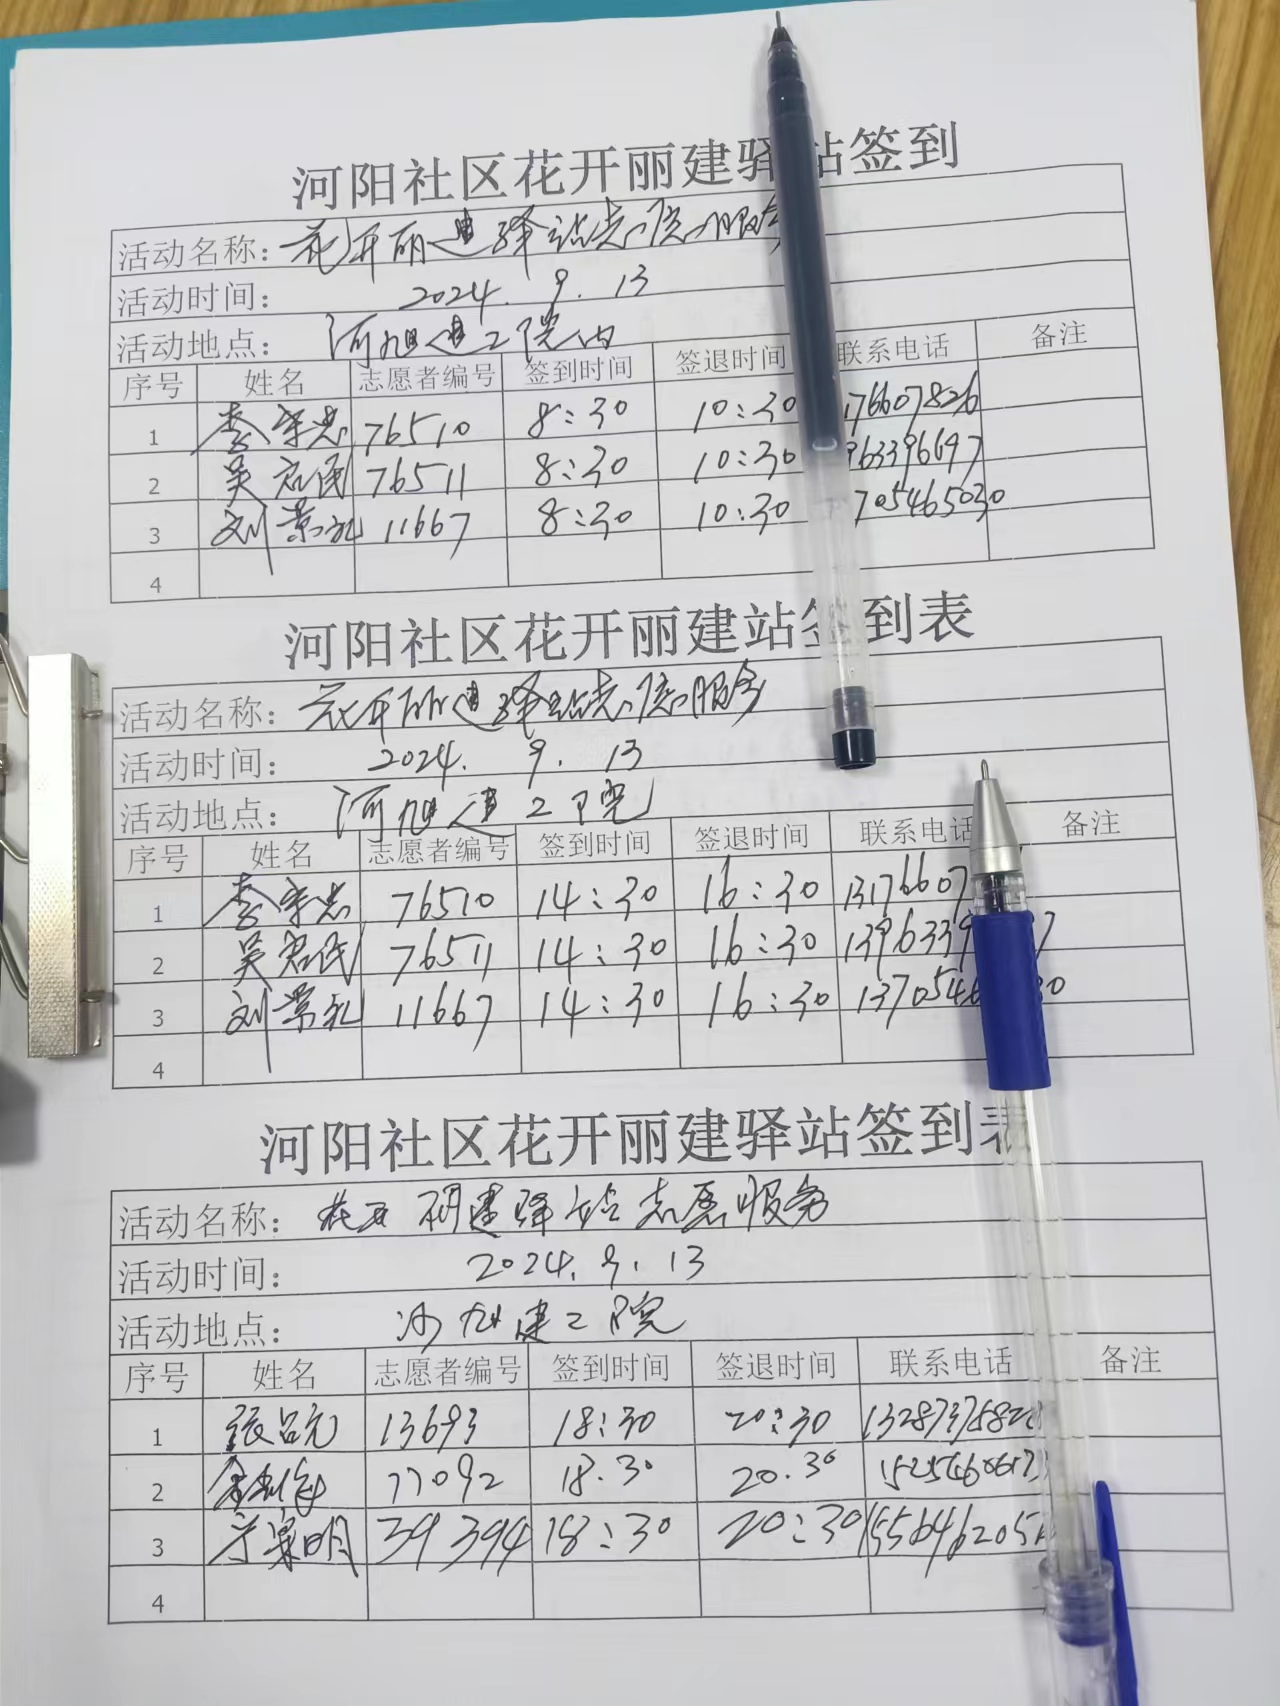 河阳社区花开丽建驿站签到
活动名称：花开丽建驿站志愿服务
活动时间： 2024. 9. 13
活动地点： 河旭建工院内
序号 姓名 志愿者编号 签到时间 签退时间 联系电话 备注
1 李宗忠 76510 8:30 10:30 176607826
2 吴君民 76511 8:30 10:30 963396697
3 刘景礼 11667 8:30 10:30 705465030
4
河阳社区花开丽建站签到表
活动名称：花开丽建驿站志愿服务
活动时间： 2024. 9. 13
活动地点： 河旭建工院
序号 姓名 志愿者编号 签到时间 签退时间 联系电话 备注
1 李宗忠 76510 14:30 16:30 13176607
2 吴君民 76511 14:30 16:30 139633997
3 刘景礼 11667 14:30 16:30 137054630
4
河阳社区花开丽建驿站签到表
活动名称：花开丽建驿站志愿服务
活动时间： 2024. 9. 13
活动地点： 河旭建工院
序号 姓名 志愿者编号 签到时间 签退时间 联系电话 备注
1 13693 18:30 20:30
2 77092 18.30 20.30
3 39394 18:30 20:30
4